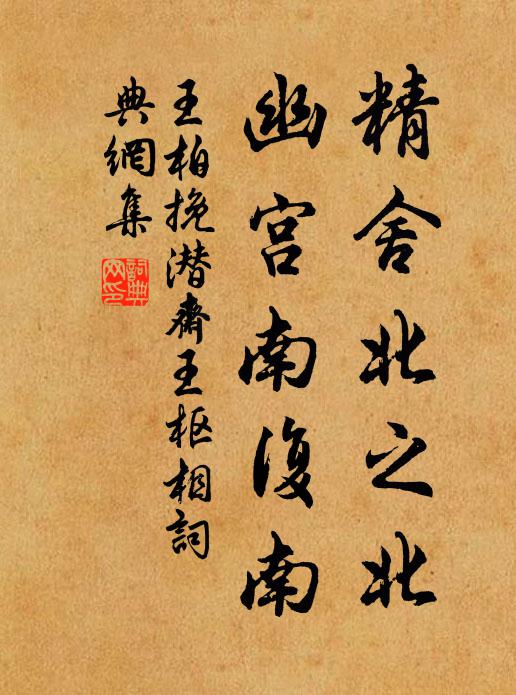 精舍北之北
幽宫南復南
王柏挽潜齋王枢相詞
典網集
詞典网印